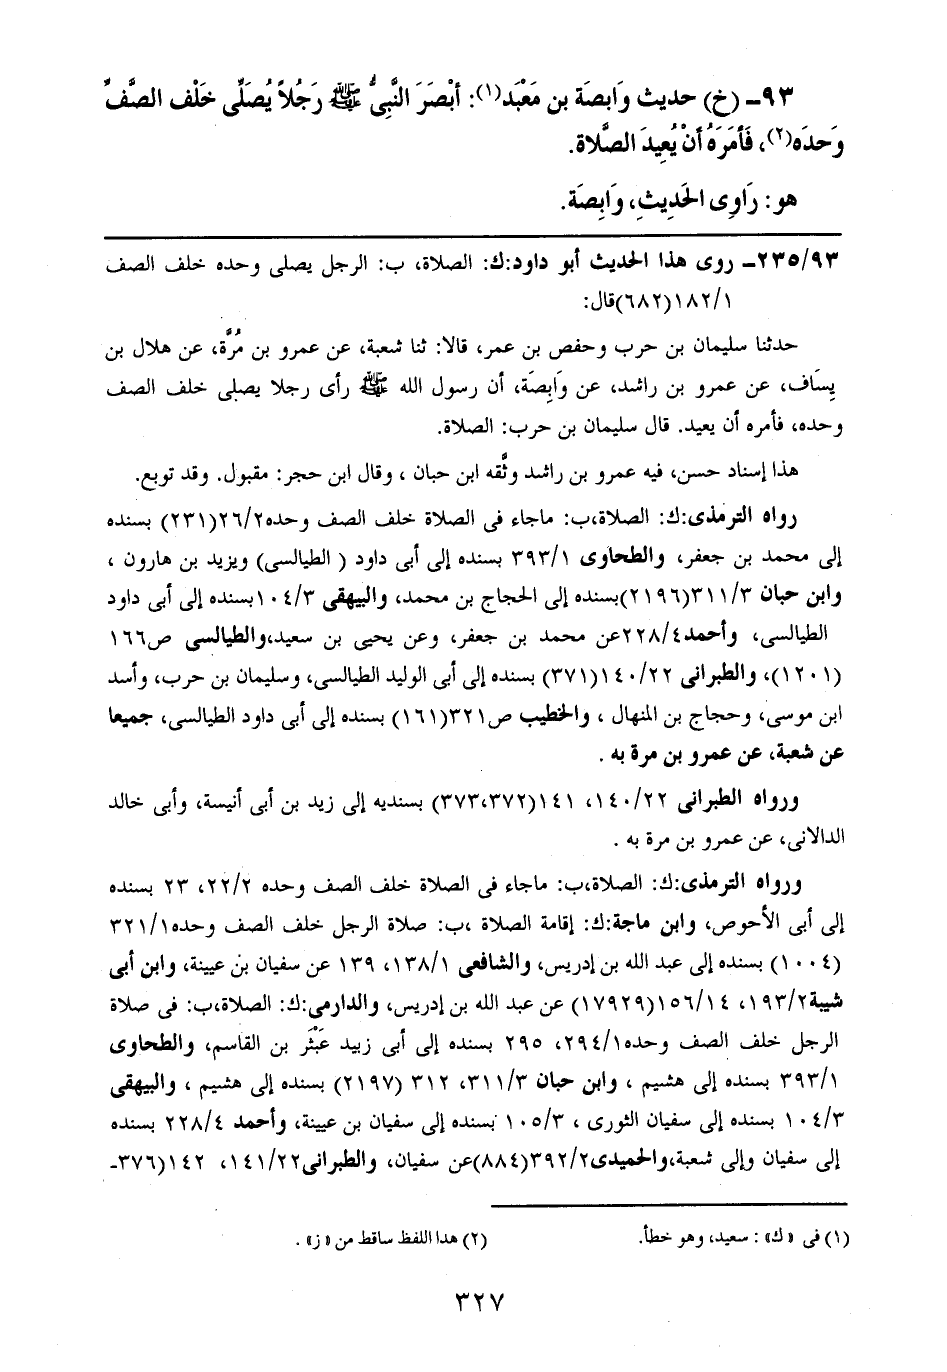 ٩٣ـ (خ) حديث وَابِصَة بن مَعْبَد(١): أبْصَرَ النَّبِىُّ ﷺ رَجُلاً يُصَلِّى خَلْف الصَّفِّ
وَحدَه(٢)، فَأمَرَهُ أنْ يُعِيدَ الصَّلاة.
هو: رَاوِى الحَدِيثِ، وَابِصَة.
٢٣٥/٩٣ـ روى هذا الحديث أبو داود:ك: الصلاة، ب: الرجل يصلى وحده خلف الصف
١٨٢/١(٦٨٢)قال:
حدثنا سليمان بن حرب وحفص بن عمر، قالا: ثنا شعبة، عن عمرو بن مُرَّة، عن هلال بن
يِسَاف، عن عمرو بن راشد، عن وَابِصَة، أن رسول الله ﷺ رأى رجلا يصلى خلف الصف
وحده، فأمره أن يعيد. قال سليمان بن حرب: الصلاة.
هذا إسناد حسن، فيه عمرو بن راشد وثَّقه ابن حبان ، وقال ابن حجر: مقبول. وقد توبع.
رواه الترمذى:ك: الصلاة،ب: ماجاء فى الصلاة خلف الصف وحده٢٦/٢(٢٣١) بسنده
إلى محمد بن جعفر، والطحاوى ٣٩٣/١ بسنده إلى أبى داود ( الطيالسى) ويزيد بن هارون ،
وابن حبان ٣١١/٣(٢١٩٦)بسنده إلى الحجاج بن محمد، والبيهقى ١٠٤/٣بسنده إلى أبى داود
الطيالسى، وأحمد٢٢٨/٤عن محمد بن جعفر، وعن يحيى بن سعيد،والطيالسى ص١٦٦
(١٢٠١)، والطبرانى ١٤٠/٢٢(٣٧١) بسنده إلى أبى الوليد الطيالسى، وسليمان بن حرب، وأسد
ابن موسى، وحجاج بن المنهال ، والخطيب ص٣٢١(١٦١) بسنده إلى أبى داود الطيالسى، جميعا
عن شعبة، عن عمرو بن مرة به .
ورواه الطبرانى ١٤٠/٢٢، ١٤١(٣٧٣،٣٧٢) بسنديه إلى زيد بن أبى أنيسة، وأبى خالد
الدالانى، عن عمرو بن مرة به .
ورواه الترمذى:ك: الصلاة،ب: ماجاء فى الصلاة خلف الصف وحده ٢٢/٢، ٢٣ بسنده
إلى أبى الأحوص، وابن ماجة:ك: إقامة الصلاة ،ب: صلاة الرجل خلف الصف وحده٣٢١/١
(١٠٠٤) بسنده إلى عبد الله بن إدريس، والشافعى ١٣٨/١، ١٣٩ عن سفيان بن عيينة، وابن أبى
شيبة١٩٣/٢، ١٥٦/١٤(١٧٩٢٩) عن عبد الله بن إدريس، والدارمى:ك: الصلاة،ب: فى صلاة
الرجل خلف الصف وحده٢٩٤/١، ٢٩٥ بسنده إلى أبى زبيد عَبْثَر بن القاسم، والطحاوى
٣٩٣/١ بسنده إلى هشيم ، وابن حبان ٣١١/٣، ٣١٢ (٢١٩٧) بسنده إلى هشيم ، والبيهقى
١٠٤/٣ بسنده إلى سفيان الثورى ، ١٠٥/٣ بسنده إلى سفيان بن عيينة، وأحمد ٢٢٨/٤ بسنده
إلى سفيان وإلى شعبة،والحميدى٣٩٢/٢(٨٨٤)عن سفيان، والطبرانى١٤١/٢٢، ١٤٢(٣٧٦ـ
(١) فى «ك» : سعيد، وهو خطأ. (٢) هذا اللفظ ساقط من «ز» .
٣٢٧